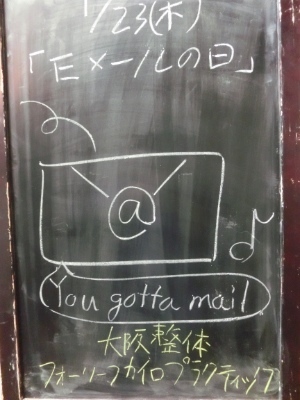 1/23(木)
「Eメールの日」
@
You gotta mail
大阪整体
フォーリーフカイロプラクティック